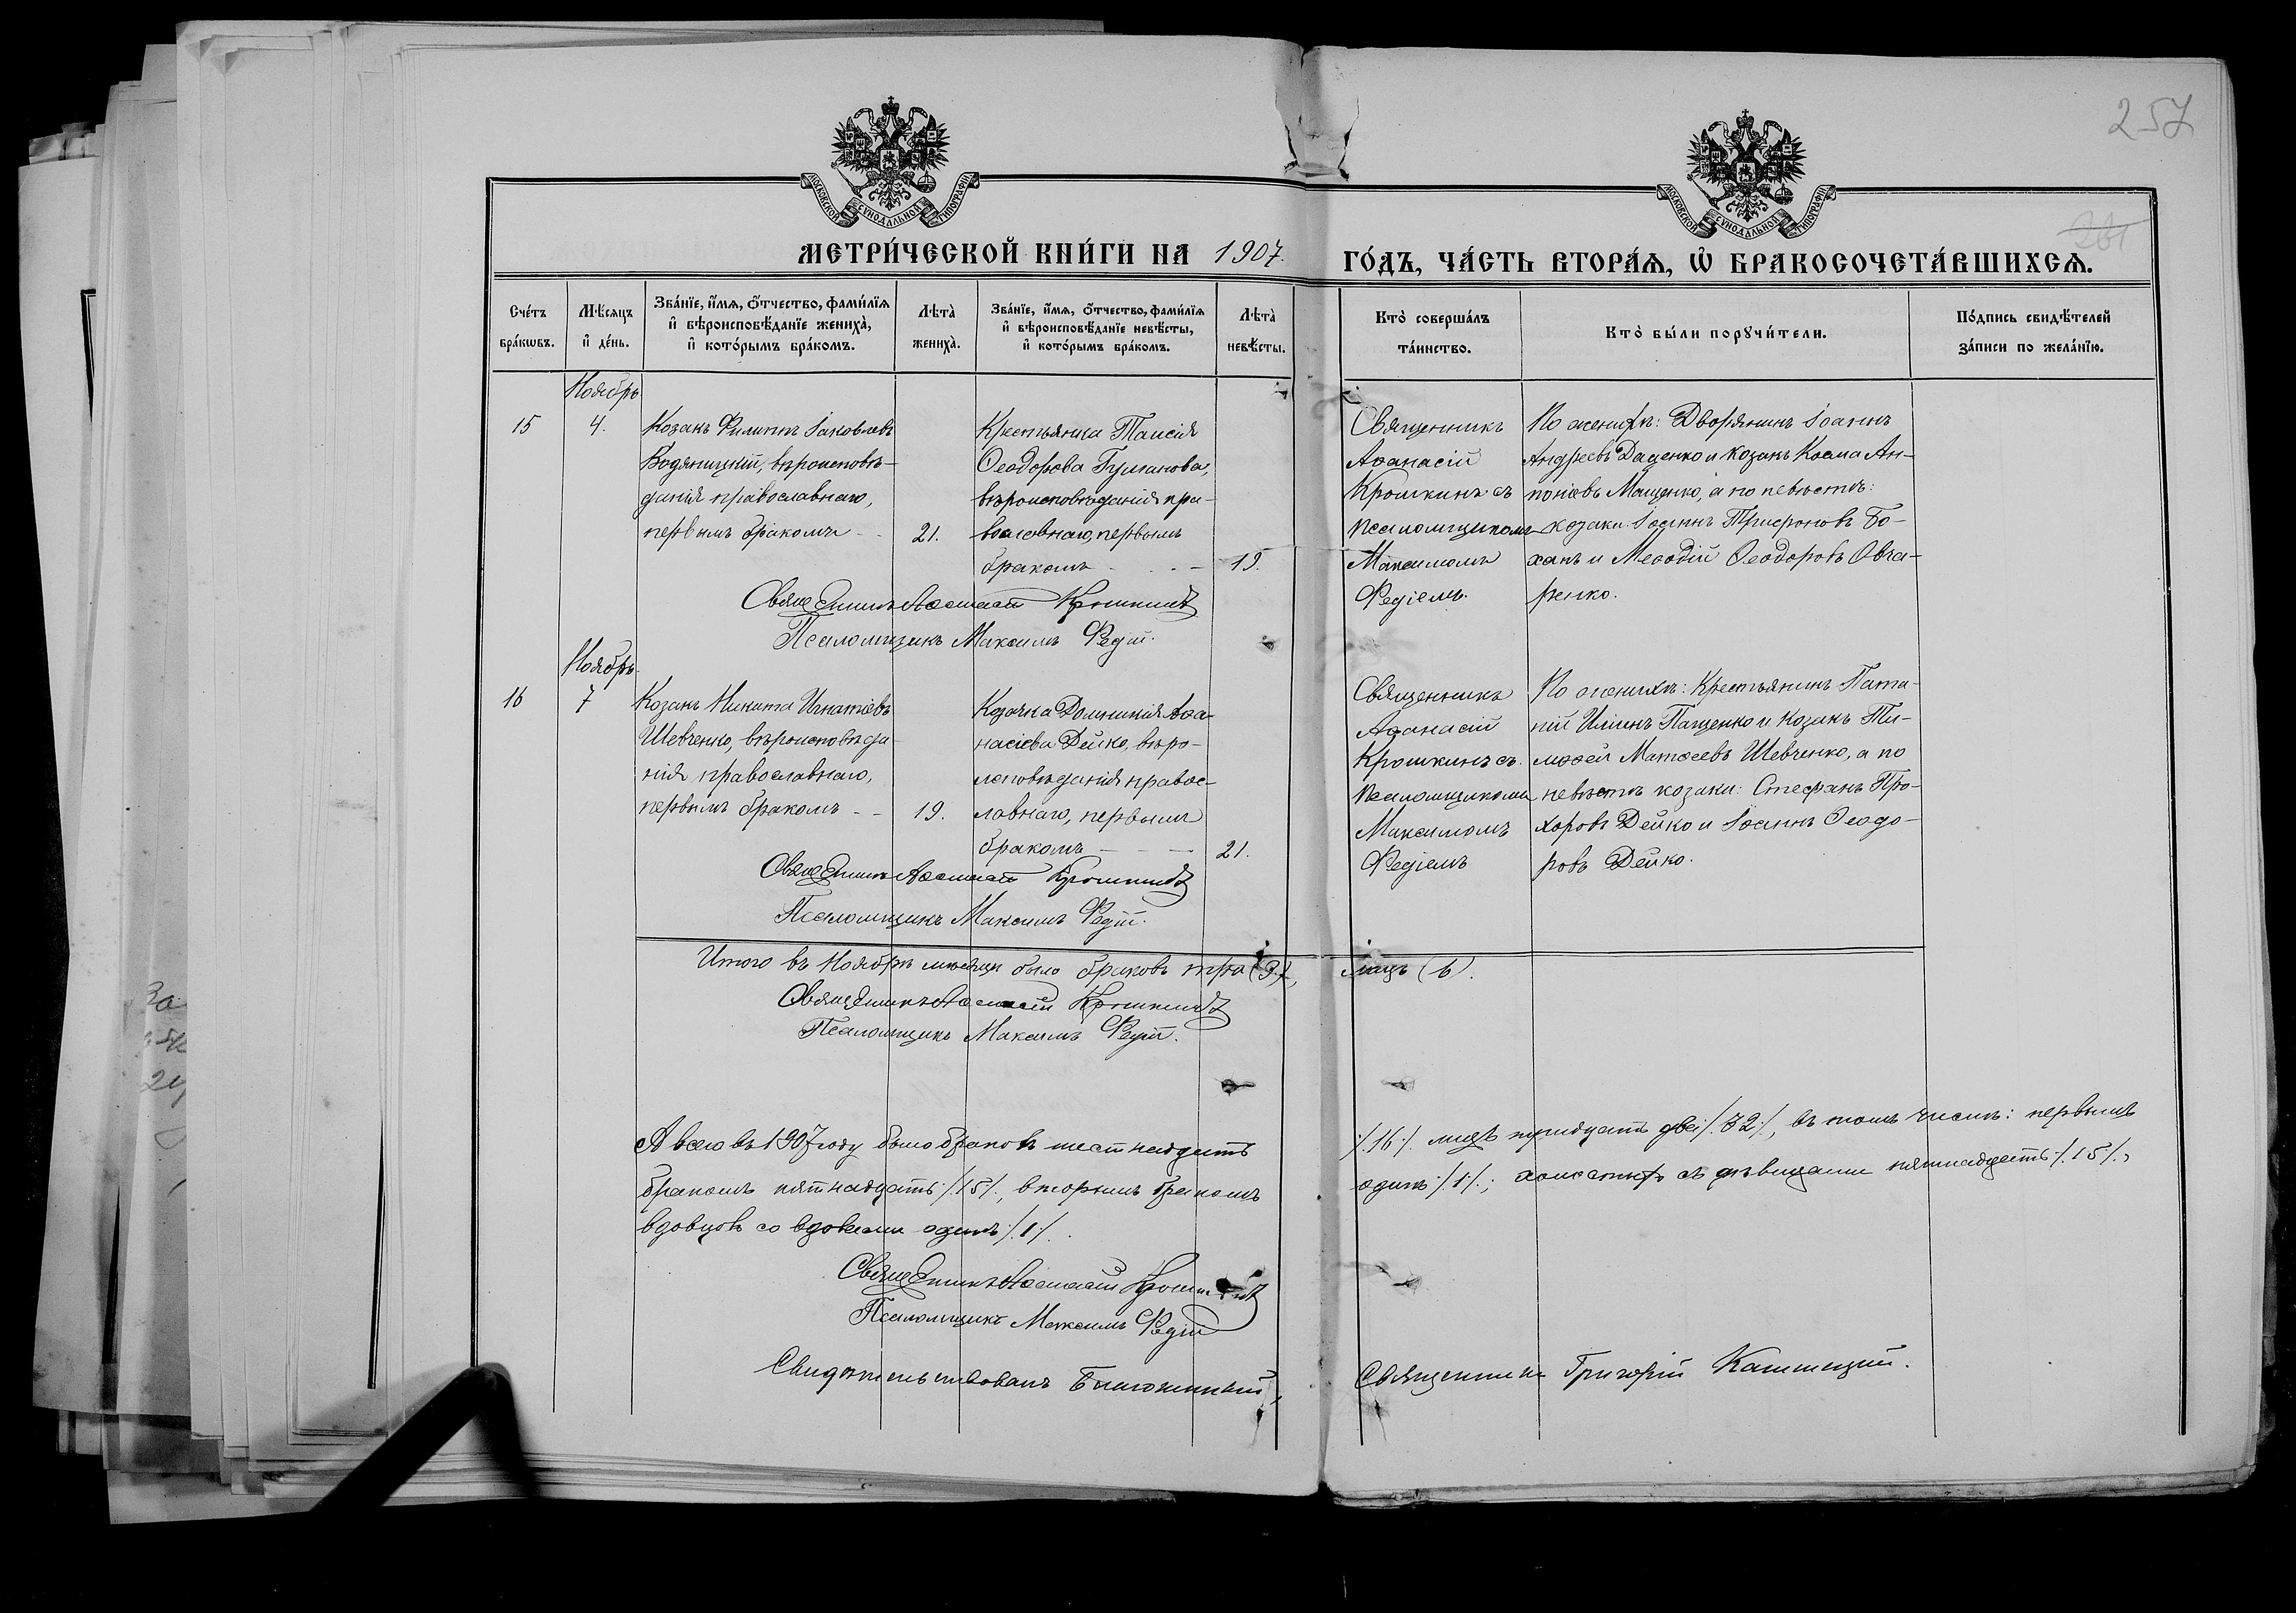 257
261
МОСКОВСКОЙ СѴНОДАЛЬНОЙ ТИПОГРАФІИ
МОСКОВСКОЙ СѴНОДАЛЬНОЙ ТИПОГРАФІИ
МЕТРИ́ЧЕСКОЙ КНИ́ГИ НА 1907.
ГО́ДЪ, ЧА́СТЬ ВТОРА́Ѧ, Ѽ БРАКОСОЧЕТА́ВШИХСѦ.
Сче́тъ
бра́кѡвъ.
Мѣ́сяцъ
и҆ де́нь.
Зва́нїе, и҆́мѧ, ѻ҆́тчество, фами́лїѧ
и҆ вѣроисповѣ́данїе жениха̀,
и҆ кото́рымъ бра́комъ.
Лѣта̀
жениха̀.
Зва́нїе, и҆́мѧ, ѻ҆́тчество, фами́лїѧ
и҆ вѣроисповѣ́данїе невѣ́сты,
и҆ кото́рымъ бра́комъ.
Лѣта̀
невѣ́сты.
Кто̀ соверша́лъ
та́инство.
Кто̀ бы́ли порꙋчи́тели.
По́дпись свидѣ́телей
за́писи по жела́нїю.
Ноябрь
15
4.
Козакъ Филиппъ Іаковлевъ
Водяницкій, вѣроисповѣ-
данія православнаго,
первымъ бракомъ - -
21.
Крестьянка Таисія
Ѳеодорова Гуманова,
вѣроисповѣданія пра-
вославнаго, первымъ
бракомъ - - -
19.
Священникъ
Аѳанасій
Крошкинъ съ
псаломщикомъ
Максимомъ
Федіемъ.
По женихѣ: Дворянинъ Іоаннъ
Андреевъ Даценко и козакъ Косма Ан-
тоніевъ Мащенко, а по невѣстѣ:
козаки: Іоаннъ Трифоновъ Бо-
ханъ и Меѳодій Ѳеодоровъ Овча-
ренко.
Священникъ Аѳанасій Крошкинъ
Псаломщикъ Максимъ Федій.
Ноябрь.
16
7
Козакъ Никита Игнатіевъ
Шевченко, вѣроисповѣда-
нія православнаго,
первымъ бракомъ - -
19.
Козачка Домникія Аѳа-
насіева Дейко, вѣро-
исповѣданія правос-
лавнаго, первымъ
бракомъ - - -
21.
Священникъ
Аѳанасій
Крошкинъ съ
псаломщикомъ
Максимомъ
Федіемъ
По женихѣ: Крестьянинъ Пата-
пій Иліинъ Пащенко и козакъ Ти-
моѳей Матѳеевъ Шевченко, а по
невѣстѣ козаки: Стефанъ Про-
хоровъ Дейко и Іоаннъ Ѳеодо-
ровъ Дейко.
Священникъ Аѳанасій Крошкинъ
Псаломщикъ Максимъ Федій.
Итого въ Ноябрѣ мѣсяцѣ было браковъ три (3), лицъ (6).
Священникъ Аѳанасій Крошкинъ
Псаломщикъ Максимъ Федій.
А всего въ 1907 году было браковъ шестнадцать /.16./ лицъ тридцать два /.32./, въ томъ числѣ: первымъ
бракомъ пятнадцать /.15./, вторымъ бракомъ одинъ /.1./; холостыхъ съ дѣвицами пятнадцать /.15./,
вдовцовъ со вдовами одинъ /.1./.
Священникъ Аѳанасій Крошкинъ
Псаломщикъ Максимъ Федій
Свидѣтельствовалъ Благочинный, Священникъ Григорій